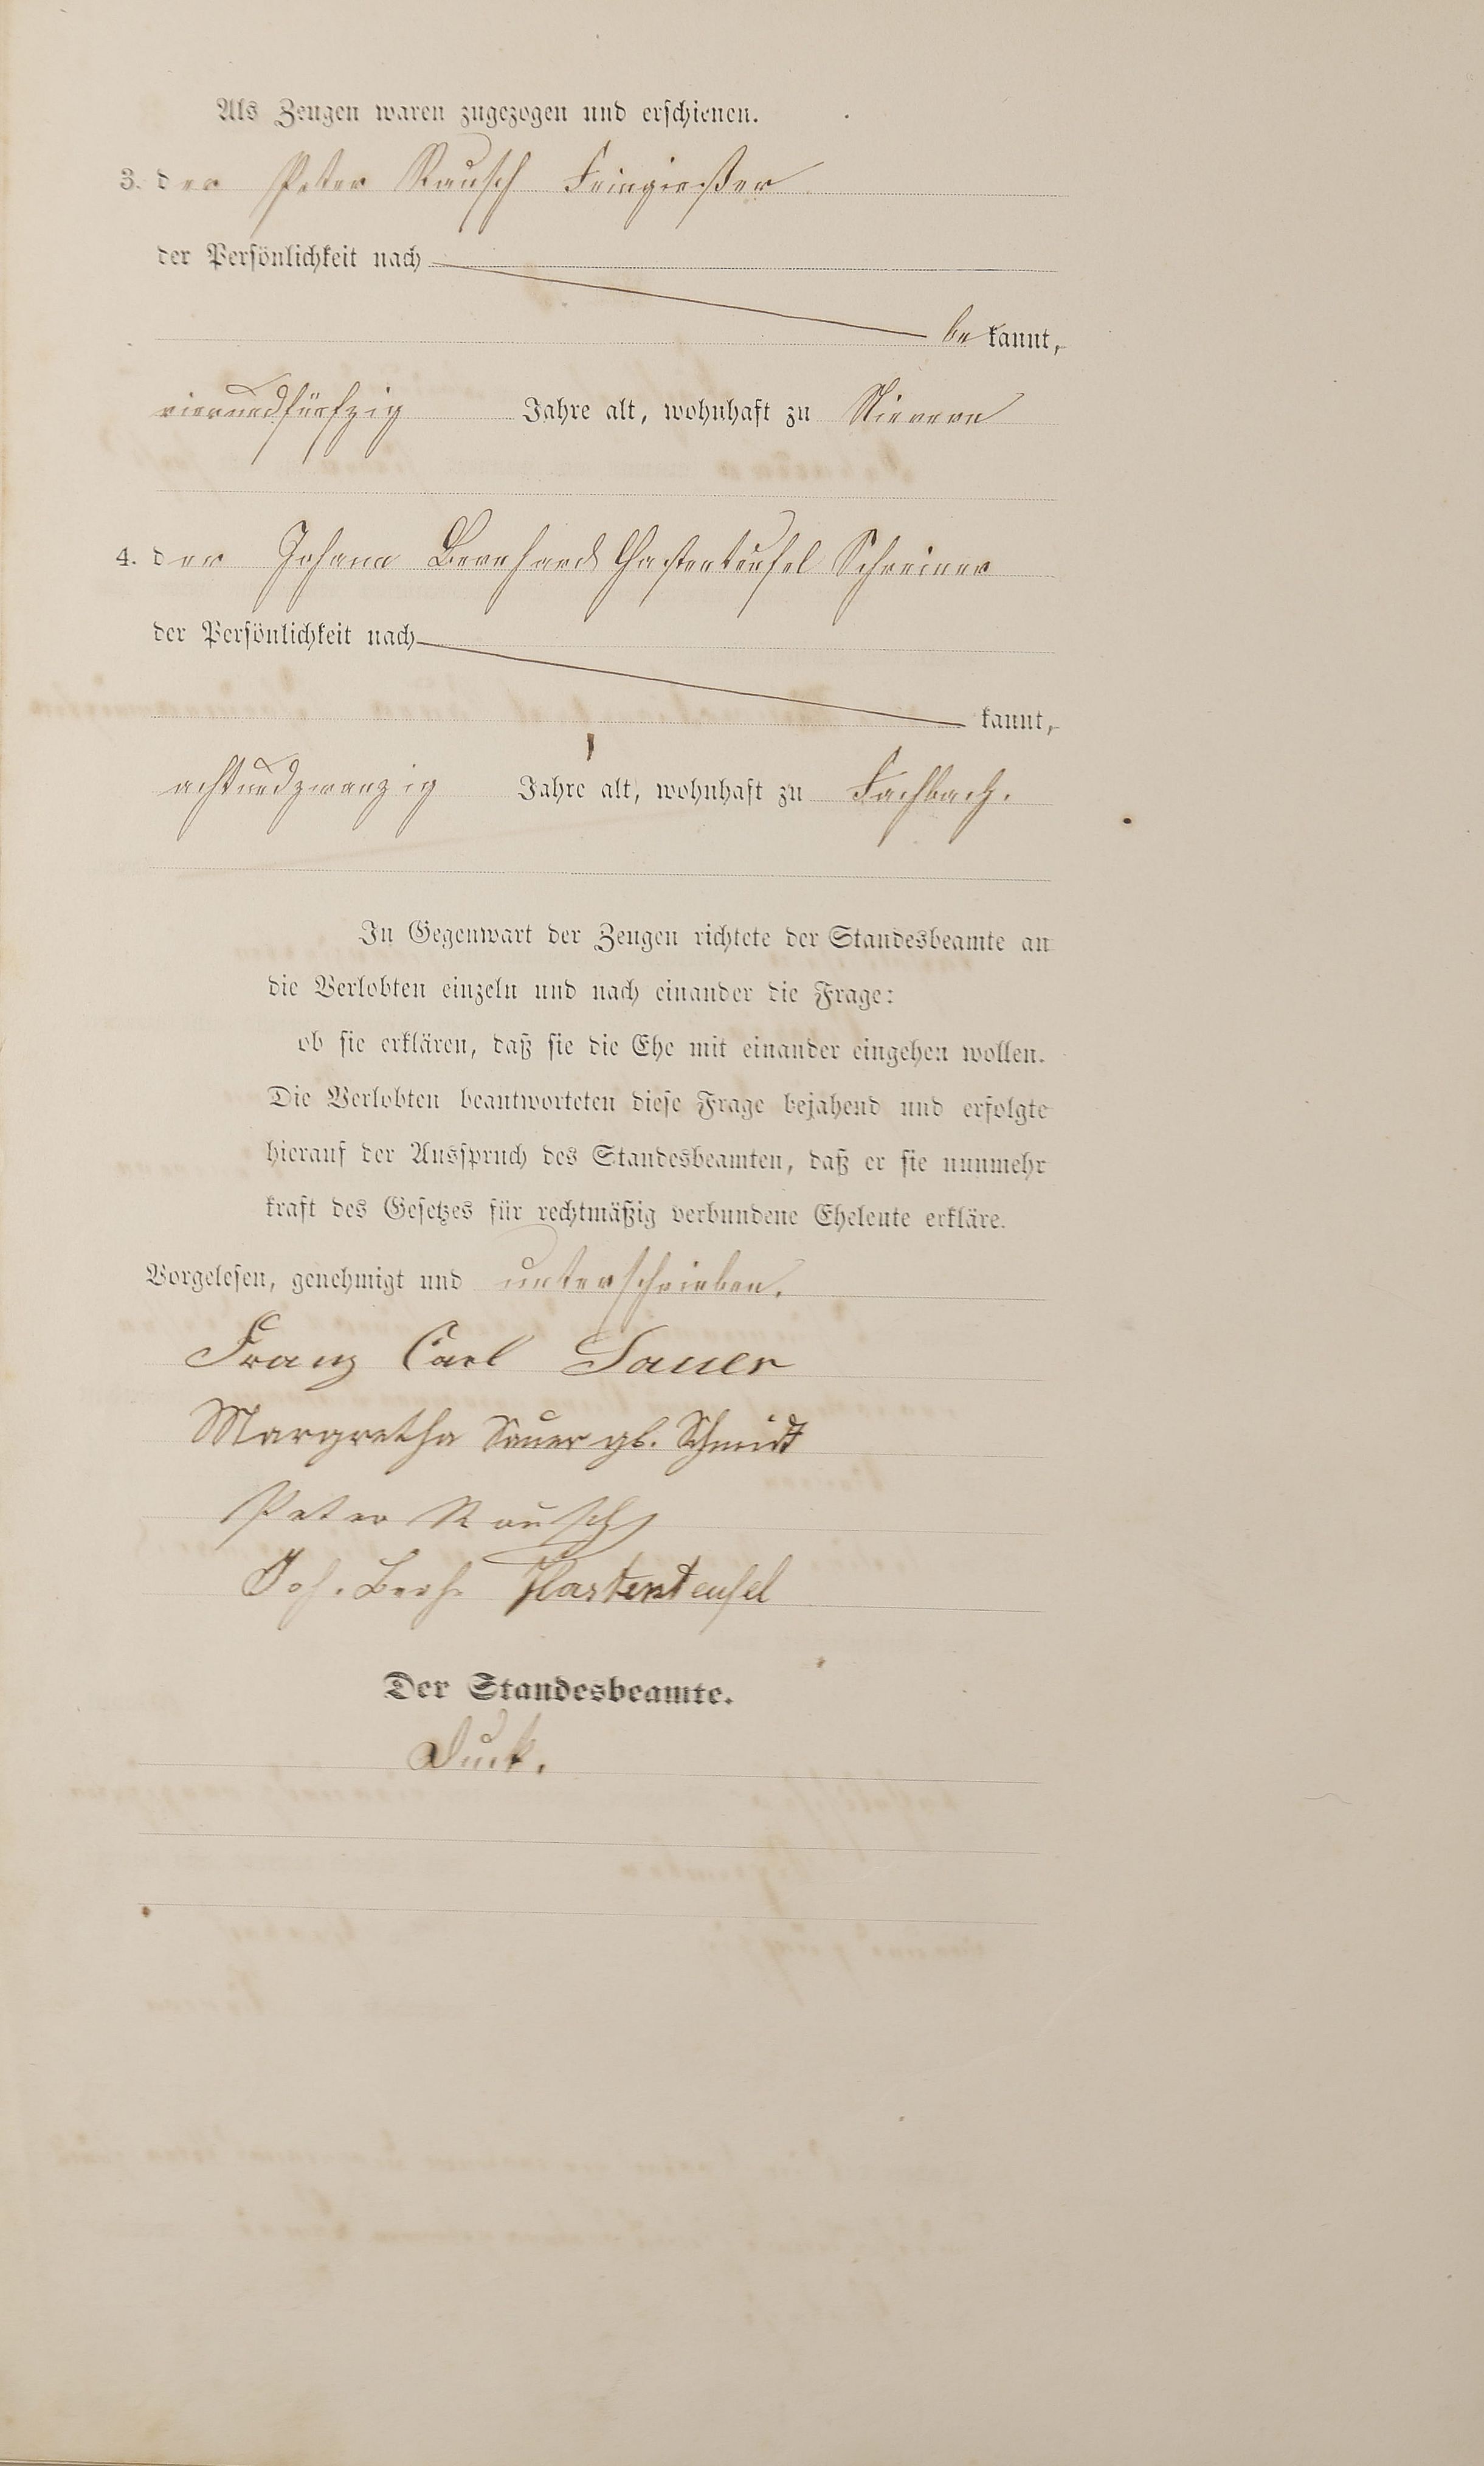 Als Zeugen waren zugezogen und erschienen.
3. der Peter Rausch Feingießer
der Persönlichkeit nach
be kannt,
vierundfünfzig Jahre alt, wohnhaft zu Nievern
4. der Johann Bernhard Hastenteufel Schreiner
der Persönlichkeit nach
kannt,
achtundzwanzig Jahre alt, wohnhaft zu Fachbach.
In Gegenwart der Zeugen richtete der Standesbeamte an
die Verlobten einzeln und nach einander die Frage:
ob sie erklären, daß sie die Ehe mit einander eingehen wollen.
Die Verlobten beantworteten diese Frage bejahend und erfolgte
hierauf der Ausspruch des Standesbeamten, daß er sie nunmehr
kraft des Gesetzes für rechtmäßig verbundene Eheleute erkläre.
Vorgelesen, genehmigt und unterschrieben.
Franz Carl Sauer
Margretha Sauer gb. Schmidt
Peter Rausch
Joh. Bernh. Hastenteufel
Der Standesbeamte.